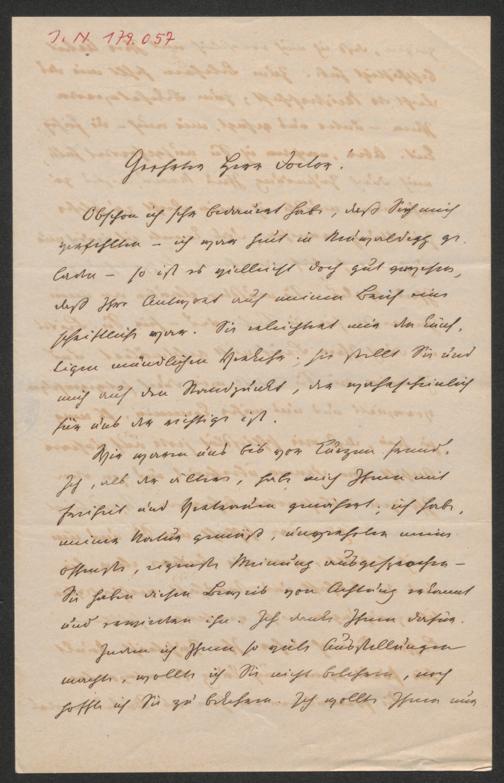 J. N. 179.057
Geehrter Herr Doctor.
Obschon ich sehr bedauert habe, daß Sie mich
verfehlten – ich war heut in Neuwaldegg ge-
laden – so ist es vielleicht doch gut gewesen,
daß Ihre Antwort auf meinen Brief eine
schriftliche war. Sie erleichtert mir den künf-
tigen mündlichen Verkehr. Sie stellt Sie und
mich auf den Standpunkt, der wahrscheinlich
für uns der richtige ist.
Wir waren uns bis vor Kurzem fremd.
Ich, als der ältere, habe mich Ihnen mit
Freiheit und Vertrauen genähert. ich habe,
meiner Natur gemäß, ungebeten meine
offenste, eigenste Meinung ausgesprochen –
Sie haben diesen Beweis von Achtung erkannt
und erwiedern ihn. Ich danke Ihnen dafür.
Indem ich Ihnen so viele Ausstellungen
machte, wollte ich Sie nicht belehren, noch
hoffte ich Sie zu bekehren. Ich wollte Ihnen nur